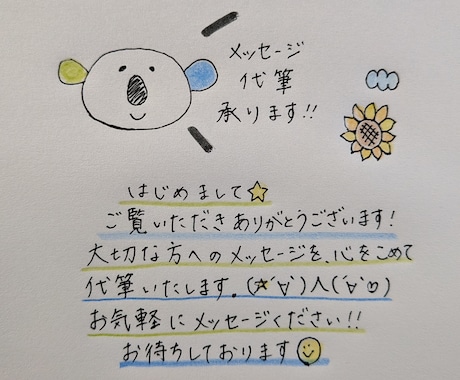 メッセージ
代筆
承ります!!
はじめまして☆
ご覧いただきありがとうございます!
大切な方へのメッセージを、心をこめて
代筆いたします。(*´∀`)人(´∀`♡)
お気軽にメッセージください!!
お待ちしております☺